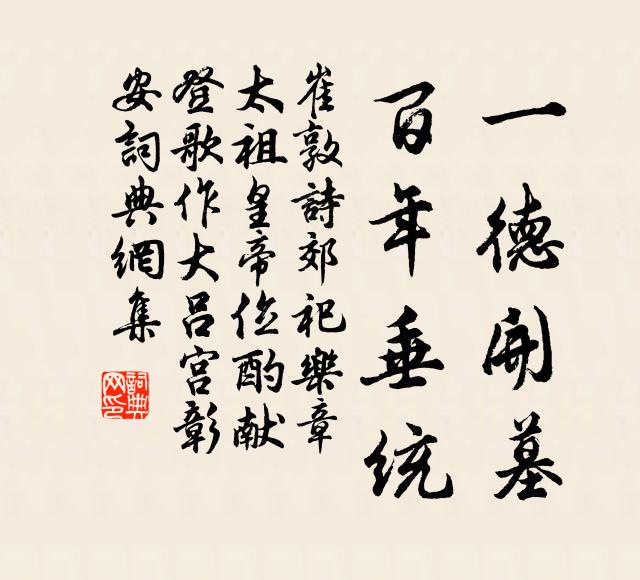 一德開墓
百年垂统
崔敦詩郊祀樂章
太祖皇帝位酌献
登歌作大吕宫彰
安詞典網集
詞典
网印